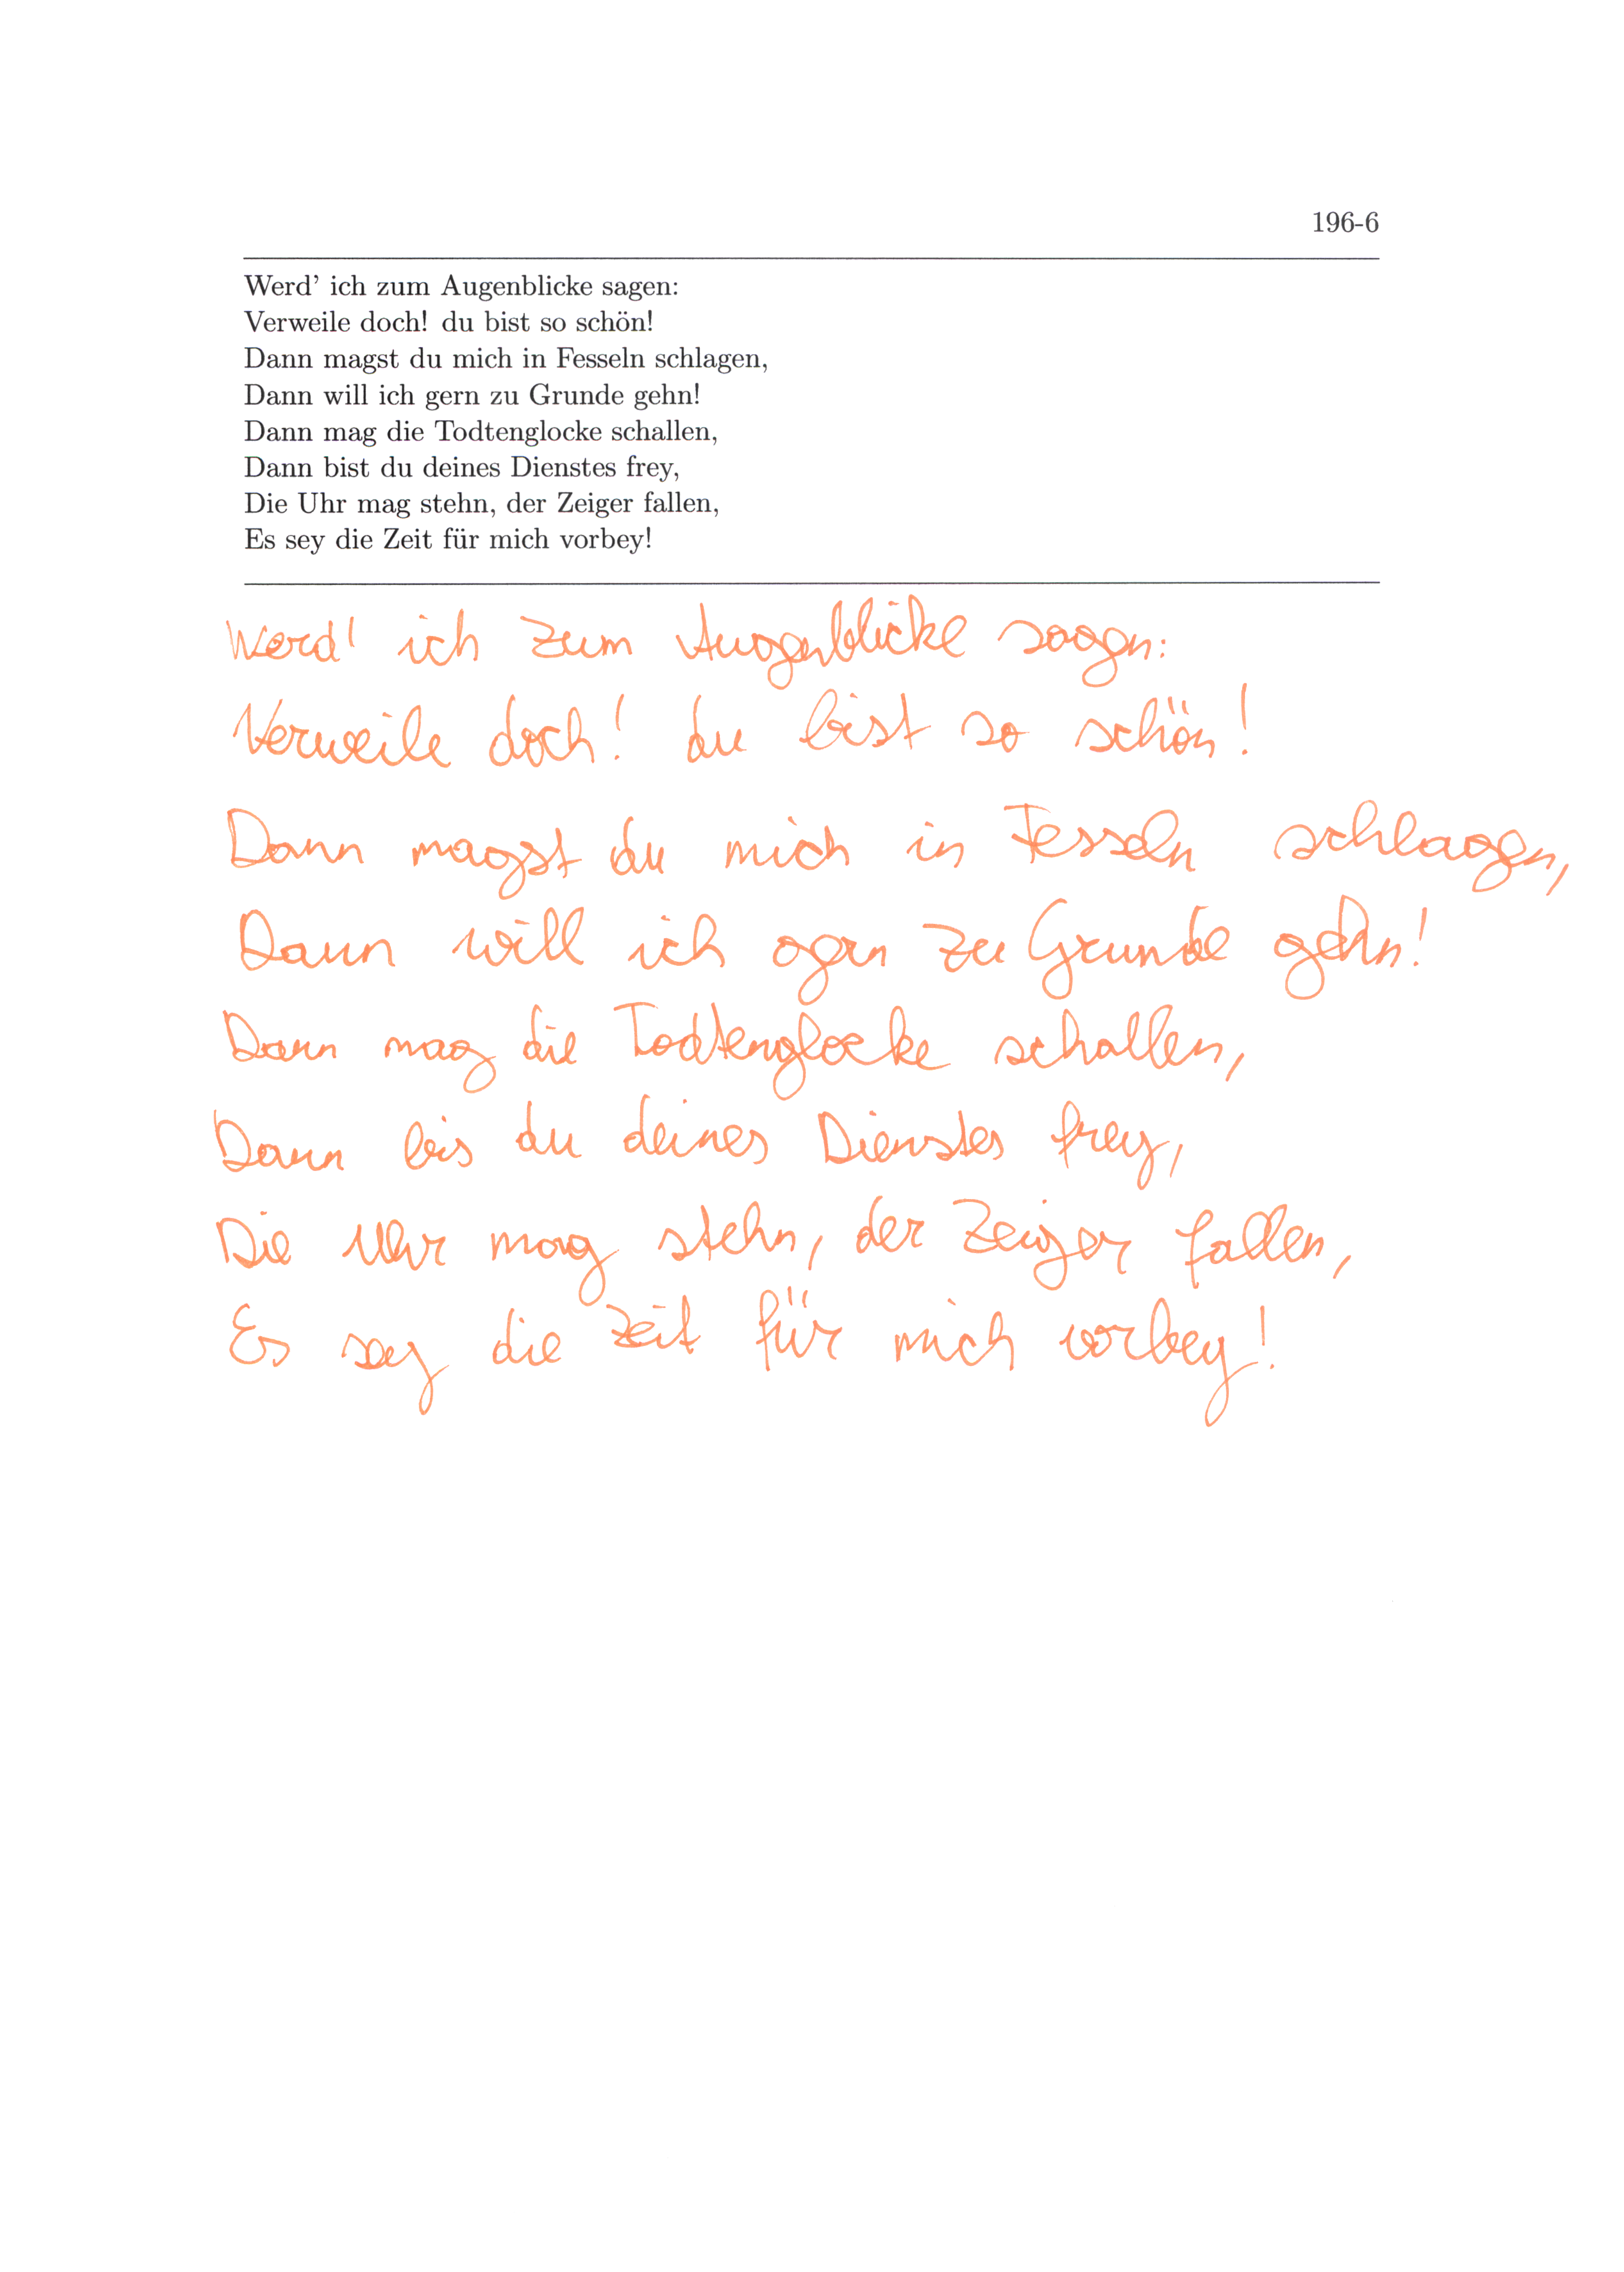 196-6
Werd' ich zum Augenblicke sagen:
Verweile doch! du bist so schön!
Dann magst du mich in Fesseln schlagen,
Dann will ich gern zu Grunde gehn!
Dann mag die Todtenglocke schallen,
Dann bist du deines Dienstes frey,
Die Uhr mag stehn, der Zeiger fallen,
Es sey die Zeit für mich vorbey!
Werd' ich zum Augenblicke sagen:
Verweile doch! du bist so schön!
Dann magst du mich in Fesseln schlagen,
Dann will ich gern zu Grunde gehn!
Dann mag die Todtenglocke schallen,
Dann bis du deines Dienstes frey,
Die Uhr mag stehn, der Zeiger fallen,
Es sey die Zeit für mich vorbey!